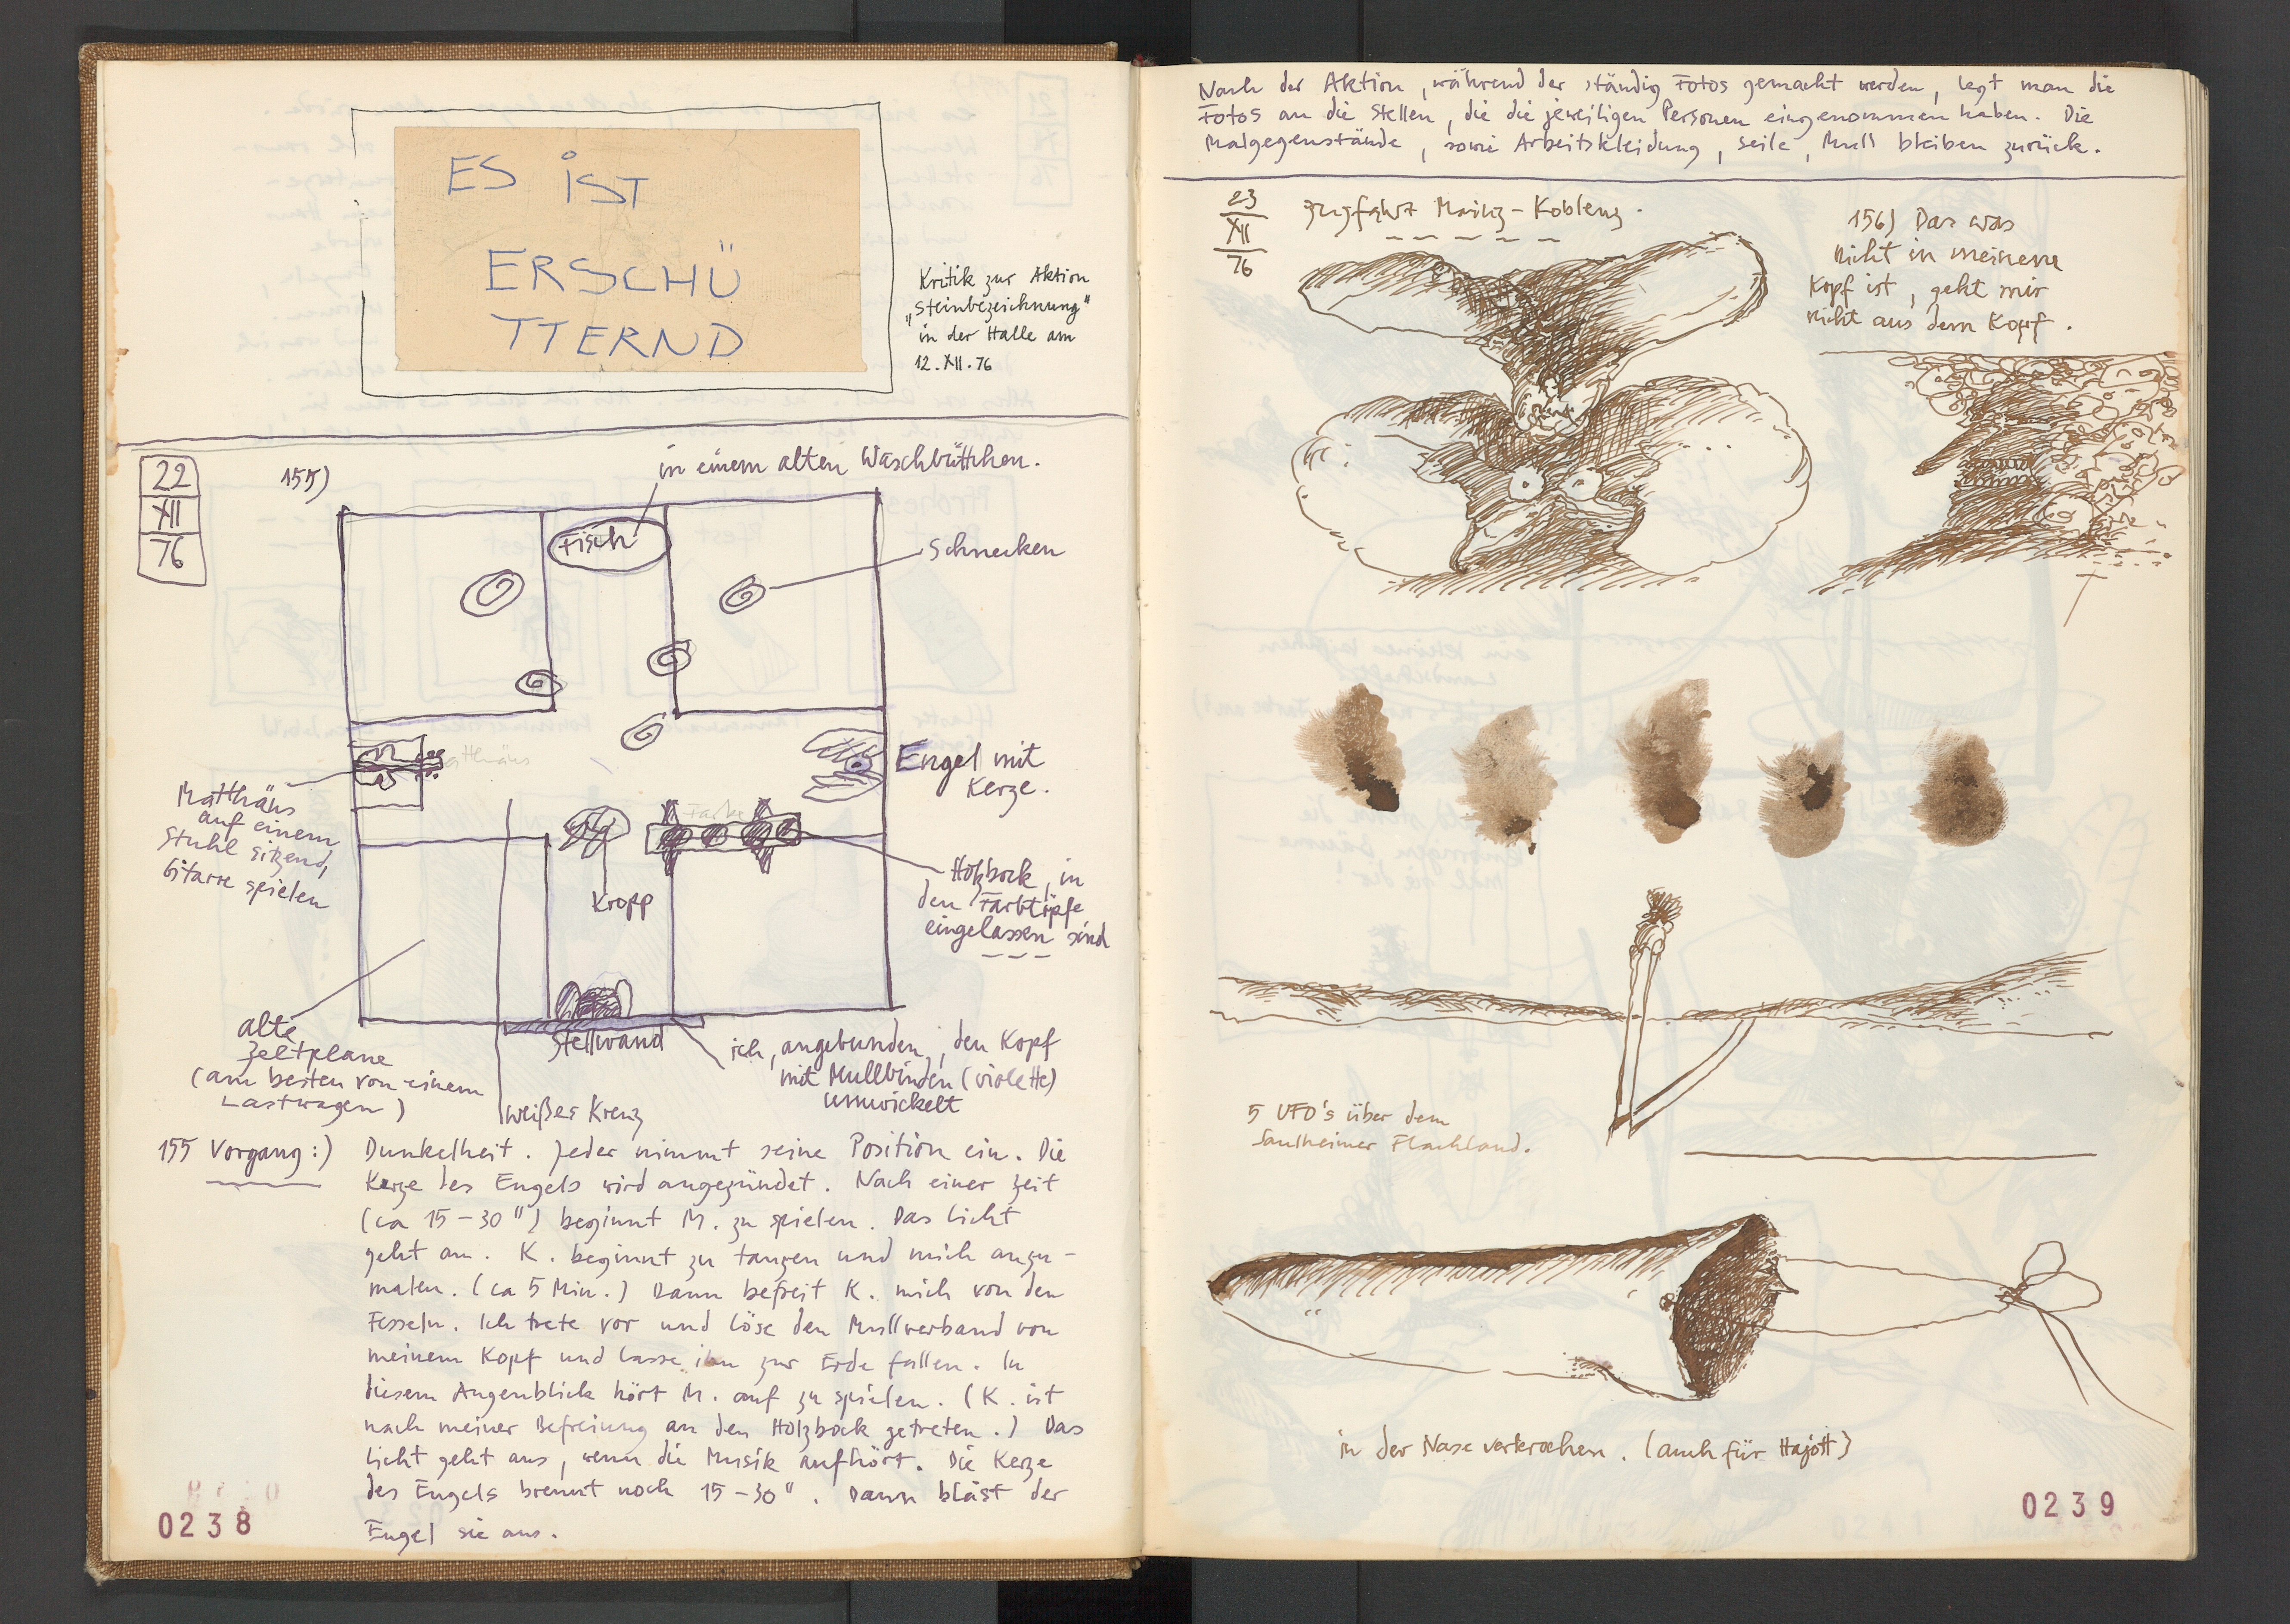 ES iST
ERSCHÜ
TTERND
Kritik zur Aktion
„Steinbezeichnung"
in der Halle am
12.XII.76
22
XII
76
155)
in einem alten Waschbüttchen.
Fisch
Schnecken
Engel mit
Kerze.
Matthäus
auf einem
Stuhl sitzend,
Gitarre spielen
Kropp
Holzbock, in
den Farbtöpfe
eingelassen sind
alte
Zeltplane
(am besten von einem
Lastwagen)
Stellwand
ich, angebunden, den Kopf
mit Mullbinden (violette)
umwickelt
weißes Kreuz
155 Vorgang:) Dunkelheit. Jeder nimmt seine Position ein. Die
Kerze des Engels wird angezündet. Nach einer Zeit
(ca 15-30") beginnt M. zu spielen. Das Licht
geht an. K. beginnt zu tanzen und mich anzu-
malen. (ca 5 Min.) Dann befreit K. mich von den
Fesseln. Ich trete vor und löse den Mullverband von
meinem Kopf und lasse ihn zur Erde fallen. In
diesem Augenblick hört M. auf zu spielen. (K. ist
nach meiner Befreiung an den Holzbock getreten.) Das
Licht geht aus, wenn die Musik aufhört. Die Kerze
des Engels brennt noch 15-30". Dann bläst der
Engel sie aus.
0238
Nach der Aktion, während der ständig Fotos gemacht werden, legt man die
Fotos an die Stellen, die die jeweiligen Personen eingenommen haben. Die
Malgegenstände, sowie Arbeitskleidung, Seile, Mull bleiben zurück.
23
XII
76
Zugfahrt Mainz-Koblenz.
156) Das was
nicht in meinem
Kopf ist, geht mir
nicht aus dem Kopf.
5 UFO's über dem
Saulheimer Flachland.
in der Nase verkrochen. (auch für Hajott)
0239